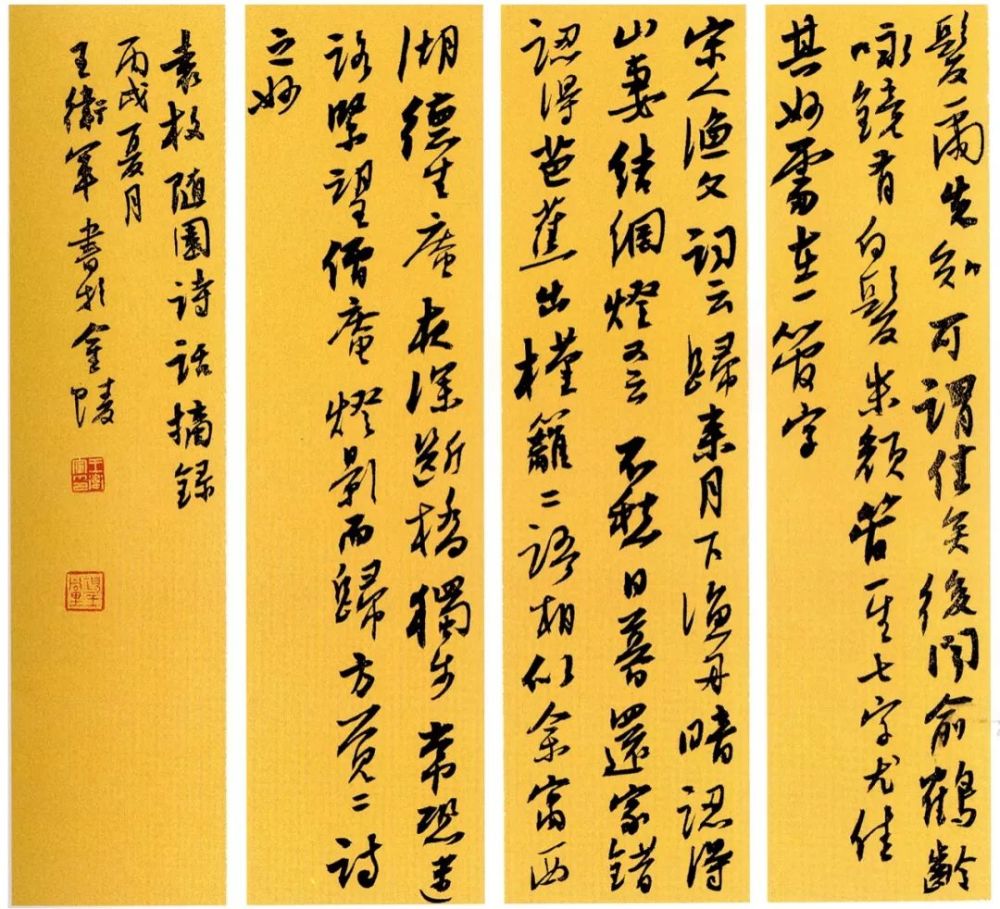 髮爾先知可謂佳矣後聞俞鶴齡
咏鏡有白髮朱顏管一生七字尤佳
其妙處在一管字
宋人漁父詞云歸來月下漁舟暗認得
山妻結網燈又云不愁日暮還家錯
認得芭蕉出槿籬二語相似余寓西
湖德生庵夜深斷橋獨步常恐迷
路緊望僧庵燈影而歸方覺二詩
之妙
袁枚隨園詩話摘錄
丙戌夏月
王衛軍書於金陵